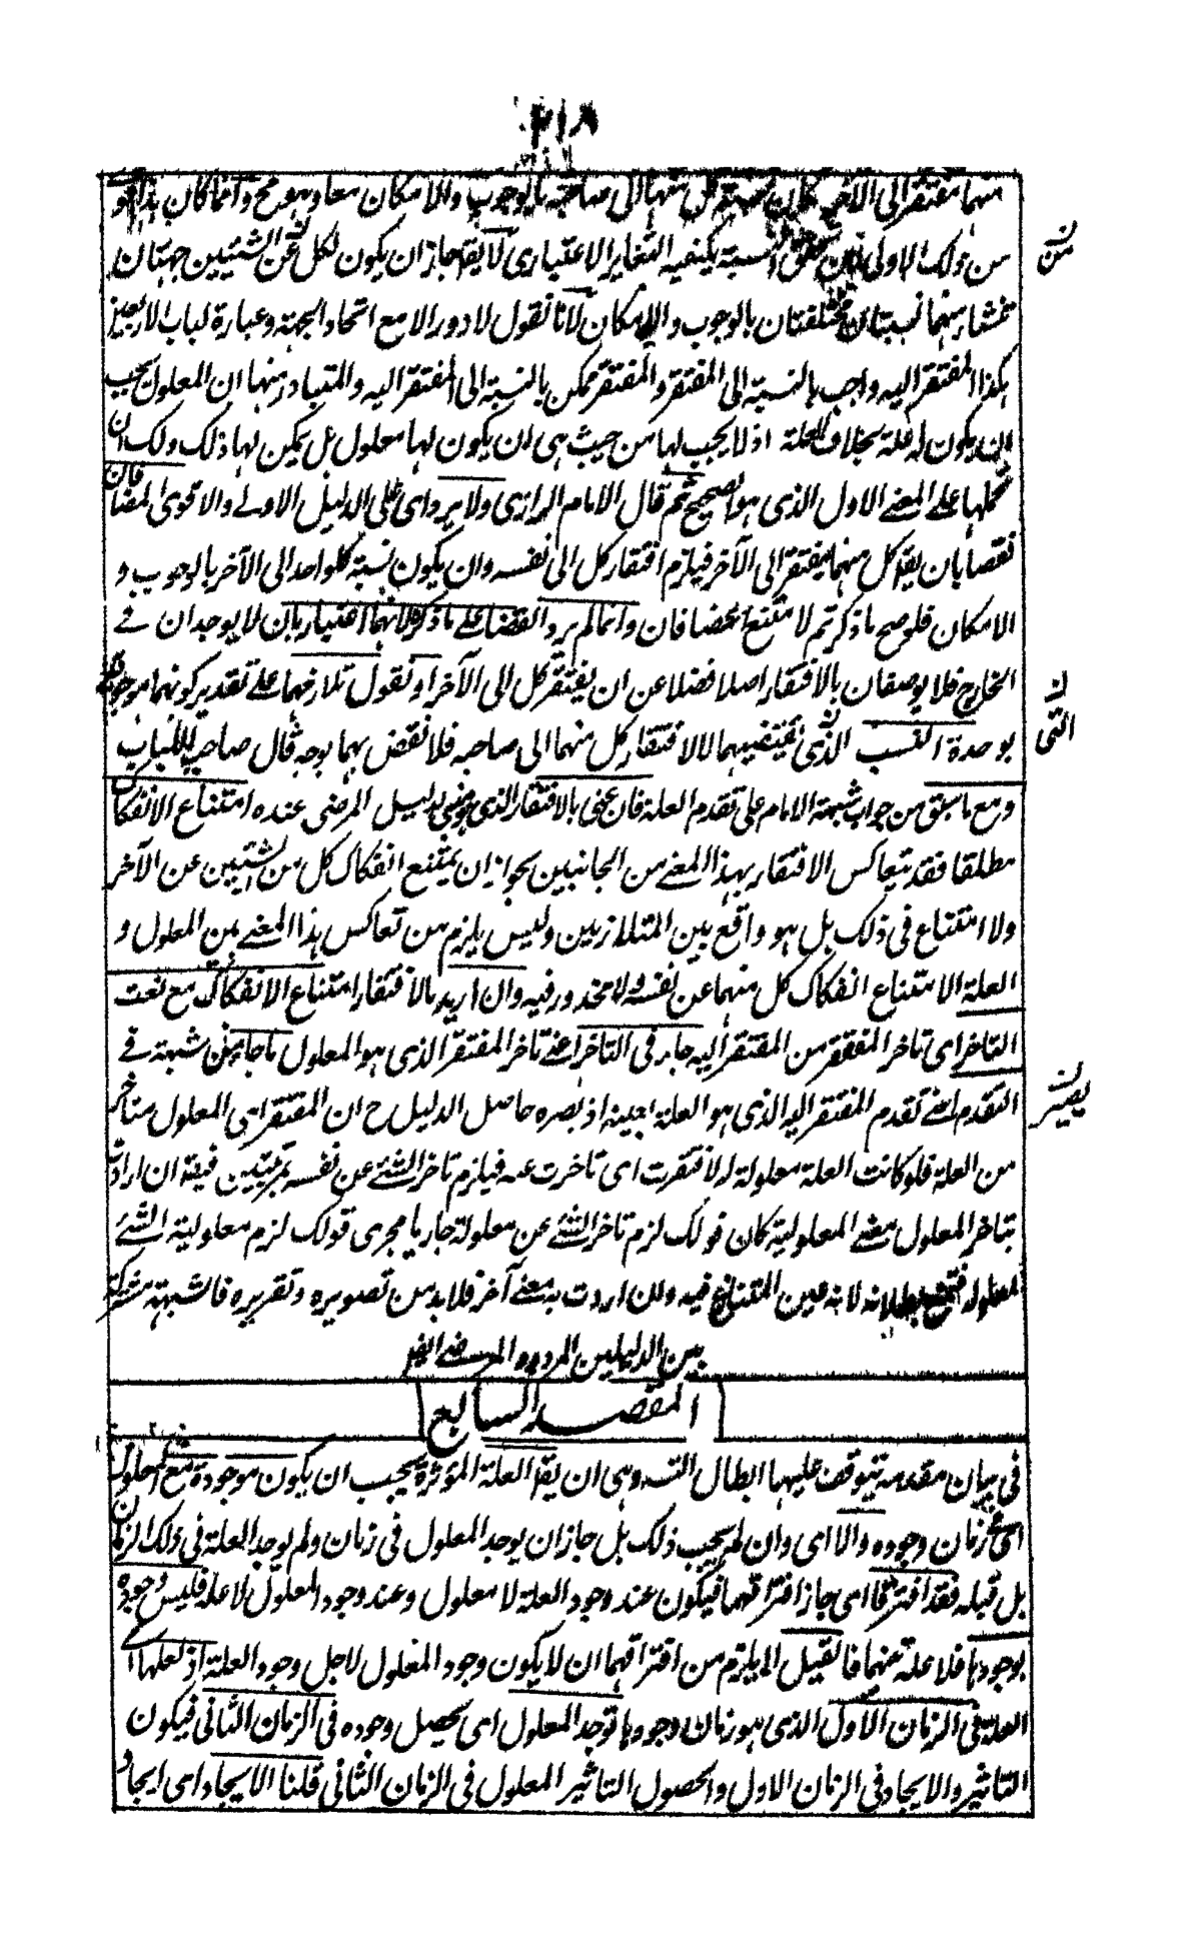 ٢١٨
منهما مفتقر الى الآخر كان نسبة كل منهما الى صاحبه بالوجوب والامكان معا وهو مح وانما كان هذا اقوى
من ذلك الاولى لان تحقق النسبة يكفيه التغاير الاعتبارى لا يقال جاز ان يكون لكل من الشيئين جهتان
ن من
تنشا منهما نسبتان مختلفتان بالوجوب والامكان لانا نقول لا دور الا مع اتحاد الجهة وعبارة لباب الاربعين
هكذا المفتقر اليه واجب بالنسبة الى المفتقر والمفتقر ممكن بالنسبة الى المفتقر اليه والمتبادر منها ان المعلول يجب
ان يكون له علة بخلاف العلة اذ لا يجب لها من حيث هى ان يكون لها معلول بل يمكن لها ذلك ولك ان
تحملها على المعنى الاول الذى هو الصحيح ثم قال الامام الرازى ولا يرد اى على الدليل الاولى والاقوى المضافان
نقضا بان يقال كل منهما يفتقر الى الآخر فيلزم افتقار كل الى نفسه وان يكون نسبة كل واحد الى الآخر بالوجوب و
الامكان فلو صح ما ذكرتم لا متنع المضافان وانما لم يرد النقض على ما ذكره لانهما اعتباريان لا يوجدان فى
الخارج فلا يوصفان بالافتقار اصلا فضلا عن ان يفتقر كل الى الآخر او نقول تلازمهما على تقدير كونهما موجودين
بوحدة السبب الذى يقتضيهما لا لافتقار كل منهما الى صاحبه فلا نقض بهما بوجه قال صاحب اللباب
ن التى
ومع ما سبق من جواب شبهة الامام على تقدم العلة فان عنى بالافتقار الذى هو مبنى لدليل المرضى عنده امتناع الانفكاك
مطلقا فقد يتعاكس الافتقار بهذا المعنى من الجانبين بجواز ان يمتنع انفكاك كل من الشيئين عن الآخر
ولا امتناع فى ذلك بل هو واقع بين المتلازمين وليس يلزم من تعاكس هذا المعنى بين المعلول و
العلة الا امتناع انفكاك كل منهما عن نفسه ولا محذور فيه وان اريد بالافتقار امتناع الانفكاك مع نعت
التاخر اى تاخر المفتقر من المفتقر اليه جاء فى التاخر اعنى تاخر المفتقر الذى هو المعلول ما جاء من شبهة فى
التقدم اعنى تقدم المفتقر اليه الذى هو العلة بعينه اذ يصره حاصل الدليل ح ان المفتقر اى المعلول متاخر
ن يصير
من العلة فلو كانت العلة معلولة له لافتقرت اى تاخرت عنه فيلزم تاخر الشئ عن نفسه بمرتبتين فيقال ان اردت
بتاخر المعلول معنى المعلولية كان قولك لزم تاخر الشئ عن معلوله جاريا مجرى قولك لزم معلولية الشئ
لمعلوله فيمنع بطلانه لانه عين المتنازع فيه وان اردت به معنى آخر فلا بد من تصويره وتقريره فالشبهة مشتركة
بين الدليلين المردود والمرضى
المقصد السابع
فى بيان مقدمة يتوقف عليها ابطال التسه وهى ان يقال العلة المؤثرة يجب ان يكون موجودة مع المعلول
اى فى زمان وجوده والا اى وان لم يجب ذلك بل جاز ان يوجد المعلول فى زمان ولم يوجد العلة فى ذلك الزمان
بل قبله فقد افترقا اى جاز افتراقهما فيكون عند وجود العلة لا معلول وعند وجود المعلول لا علة فليس وجوده
بوجودها فلا علية بينهما فان قيل لا يلزم من افتراقهما ان لا يكون وجود المعلول لاجل وجود العلة اذ لعلها اى
العلة فى الزمان الاول الذى هو زمان وجودها توجد المعلول اى يحصل وجوده فى الزمان الثانى فيكون
التاثير والايجاد فى الزمان الاول والحصول التاثير المعلول فى الزمان الثانى قلنا الايجاد اى ايجاد